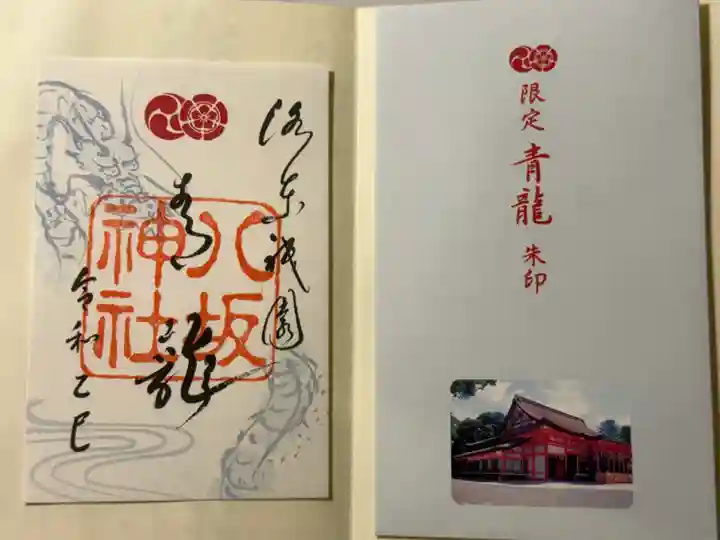 洛東祇園
青龍
八坂
神社
令和乙巳
限定
青龍
朱印